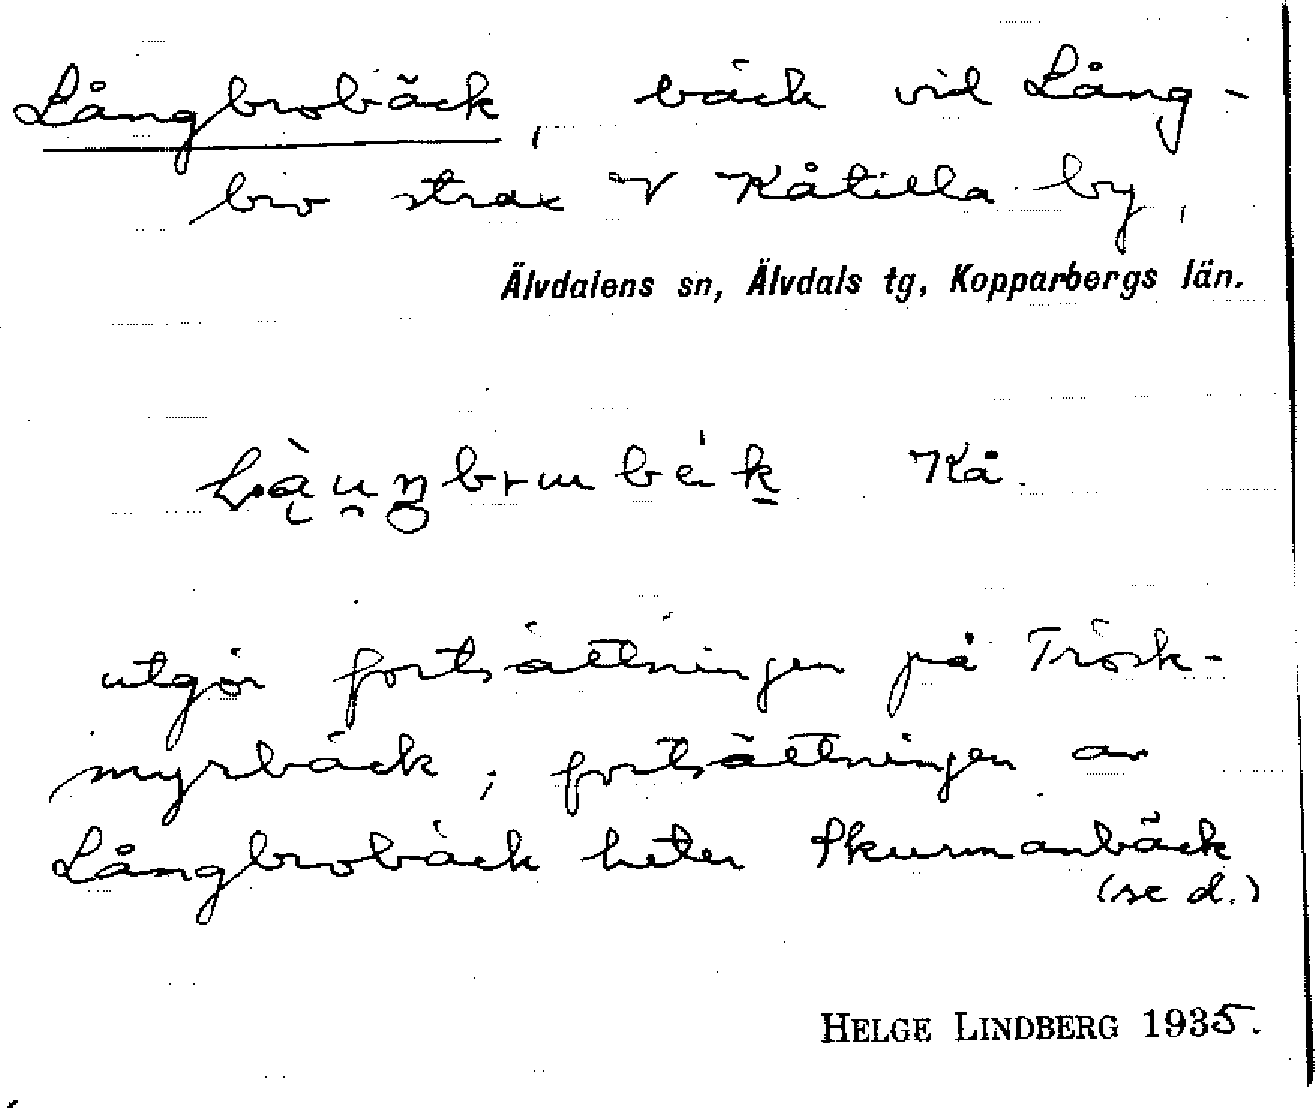 Långbrobäck, bäck vid Lång-
bro strax V Kåtilla by,
Älvdalens sn, Älvdals tg, Kopparbergs län.
Kå.
utgör fortsättningen på Trösk-
myrbäck; fortsättningen av
Långbrobäck heter Skurmanbäck
(se d.)
HELGE LINDBERG 1935.